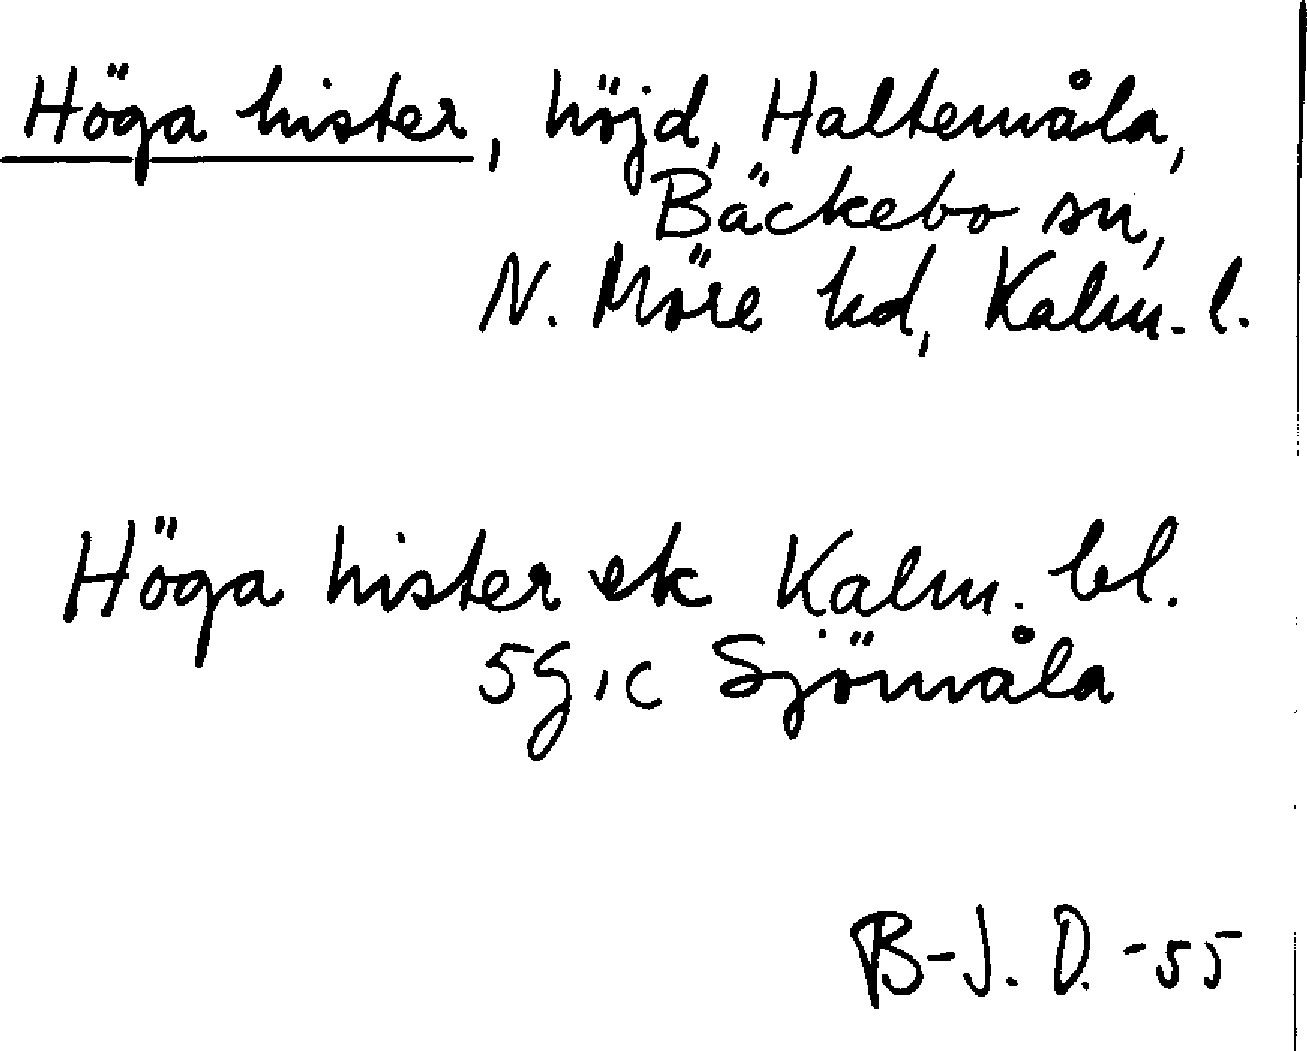 Höga hister, höjd, Haltemåla,
Bäckebo sn,
N. Möre hd, Kalm. l.
Höga hister ek Kalm. bl.
5g,c Sjömåla
B-J. D. -55